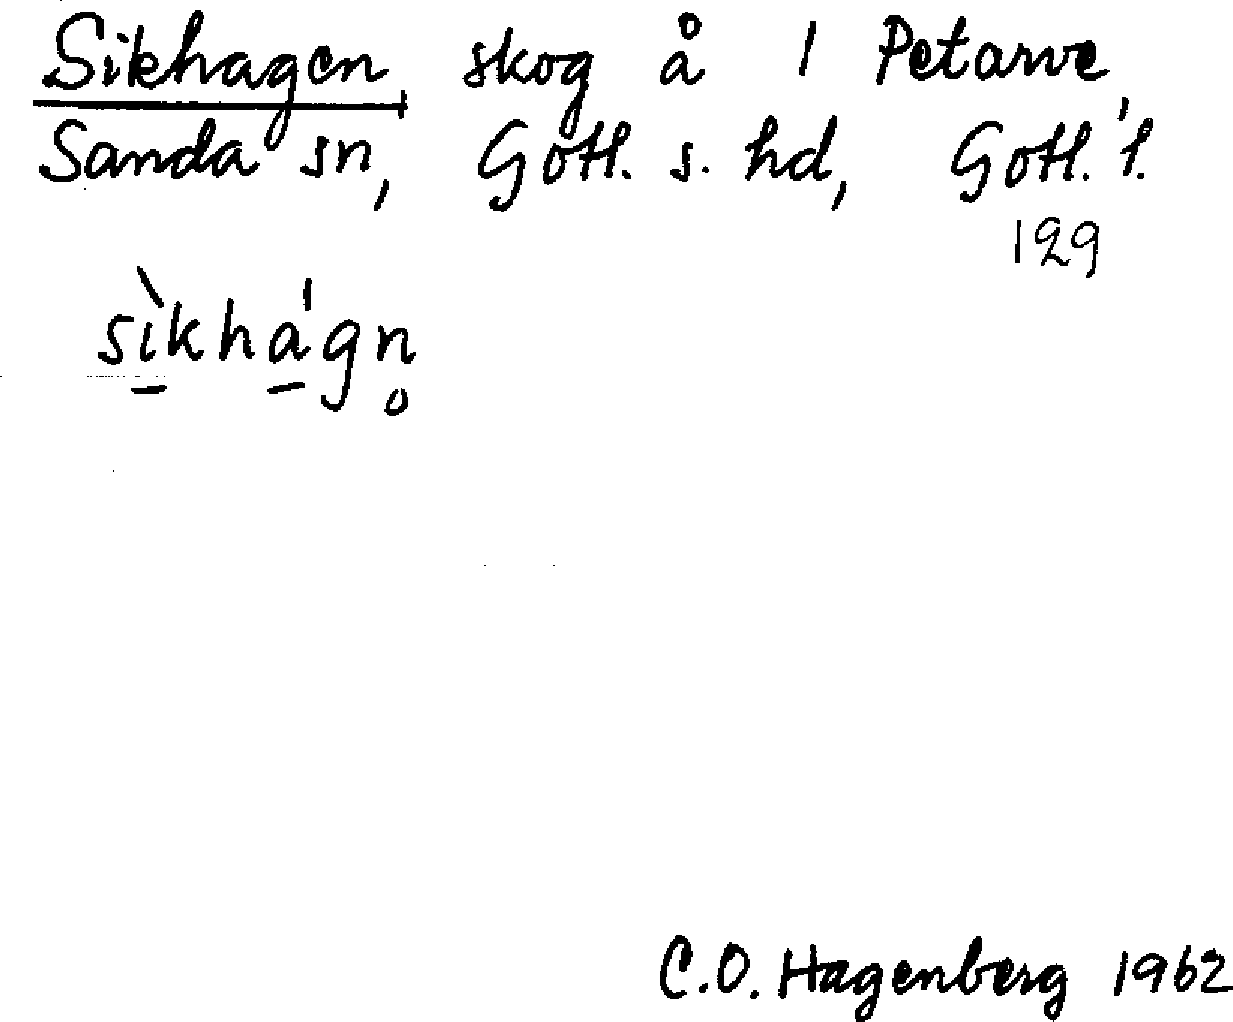 Sikhagen, skog å 1 Petarve,
Sanda sn, Gotl. s. hd, Gotl. l.
129
sìkhá'gn̥
C.O. Hagenberg 1962